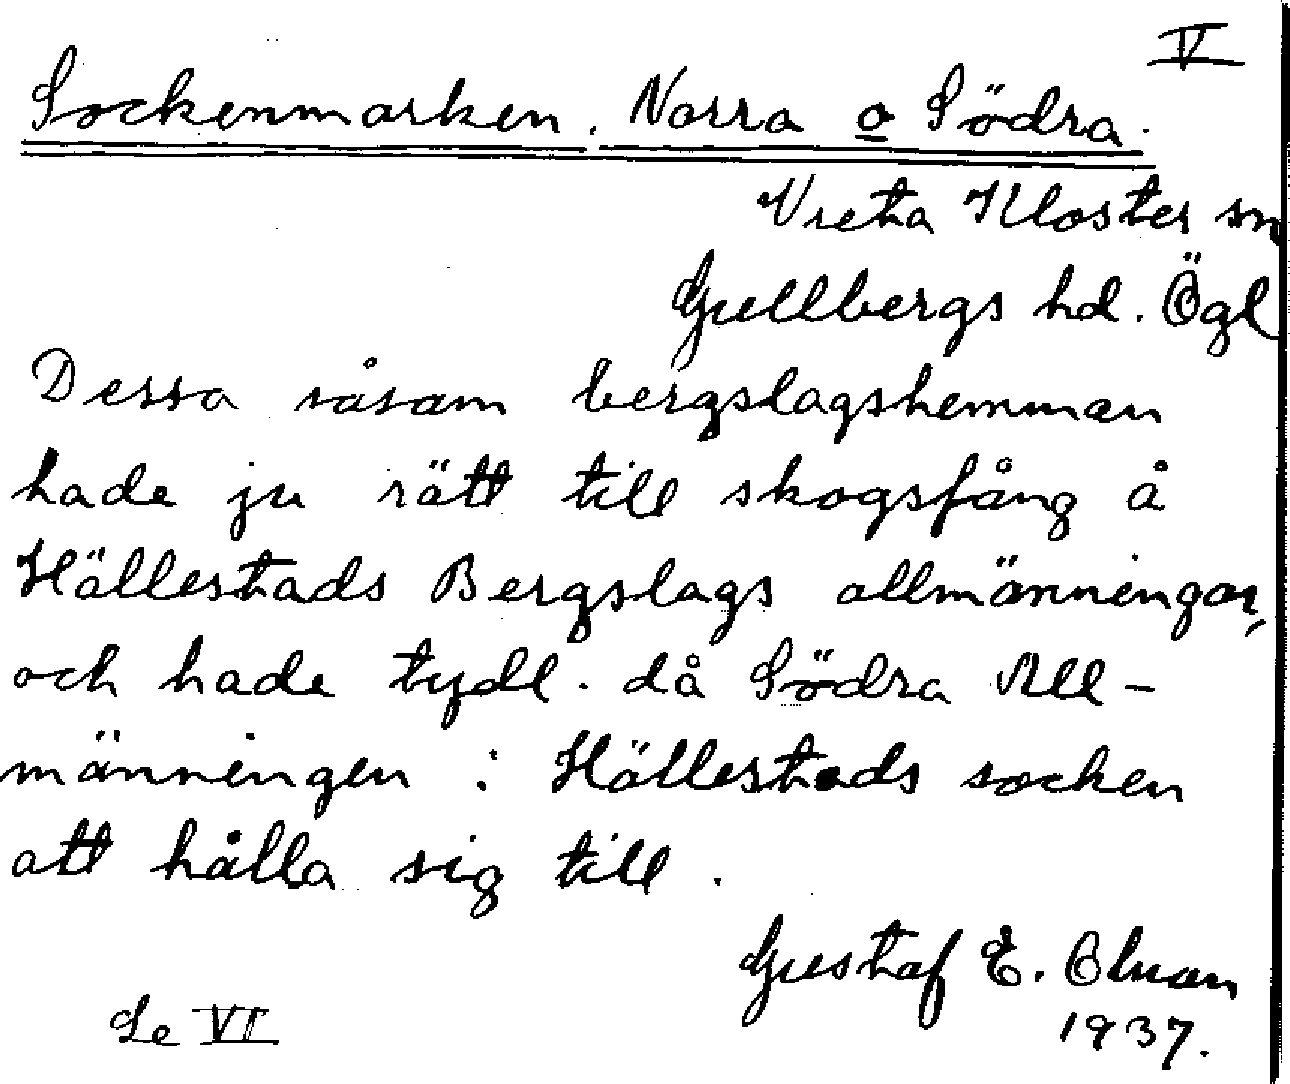 V
Sockenmarken. Norra o Södra.
Vreta Kloster sn
Gullbergs hd. Ögl
Dessa såsom bergslagshemman
hade ju rätt till skogsfång å
Hällestads Bergslags allmänningar,
och hade tydl. då Södra All-
männingen i Hällestads socken
att hålla sig till.
Gustaf E. Ohman
1937.
Se VI